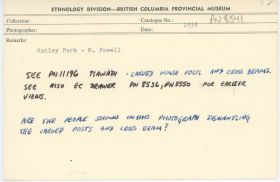 ETHNOLOGY DIVISION—BRITISH COLUMBIA PROVINCIAL MUSEUM
Collection: Catalogue No.: PN 8541
Photographer: Date: 1938
Remarks:
Hatley Park - M. Powell
SEE PN 11196 TSAWADI - CARVED HOUSE POSTS AND CROSS BEAMS.
SEE ALSO EC DRAWER PN 8536, PN 8550 FOR EARLIER
VIEWS.
ARE THE PEOPLE SHOWN IN THIS PHOTOGRAPH DISMANTLING
THE CARVED POSTS AND CROSS BEAM?